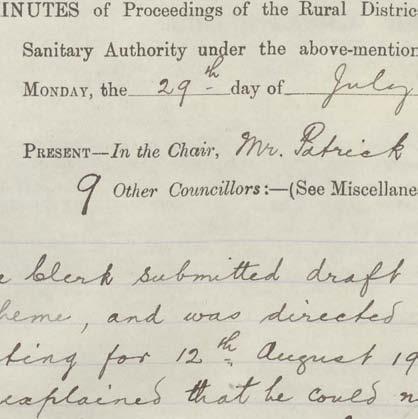 MINUTES of Proceedings of the Rural Distric
Sanitary Authority under the above-mention
MONDAY, the 29th day of July
PRESENT—In the Chair, Mr. Patrick
9 Other Councillors:—(See Miscellane
e Clerk submitted draft
heme, and was directed
ting for 12th August 19
explained that he could n